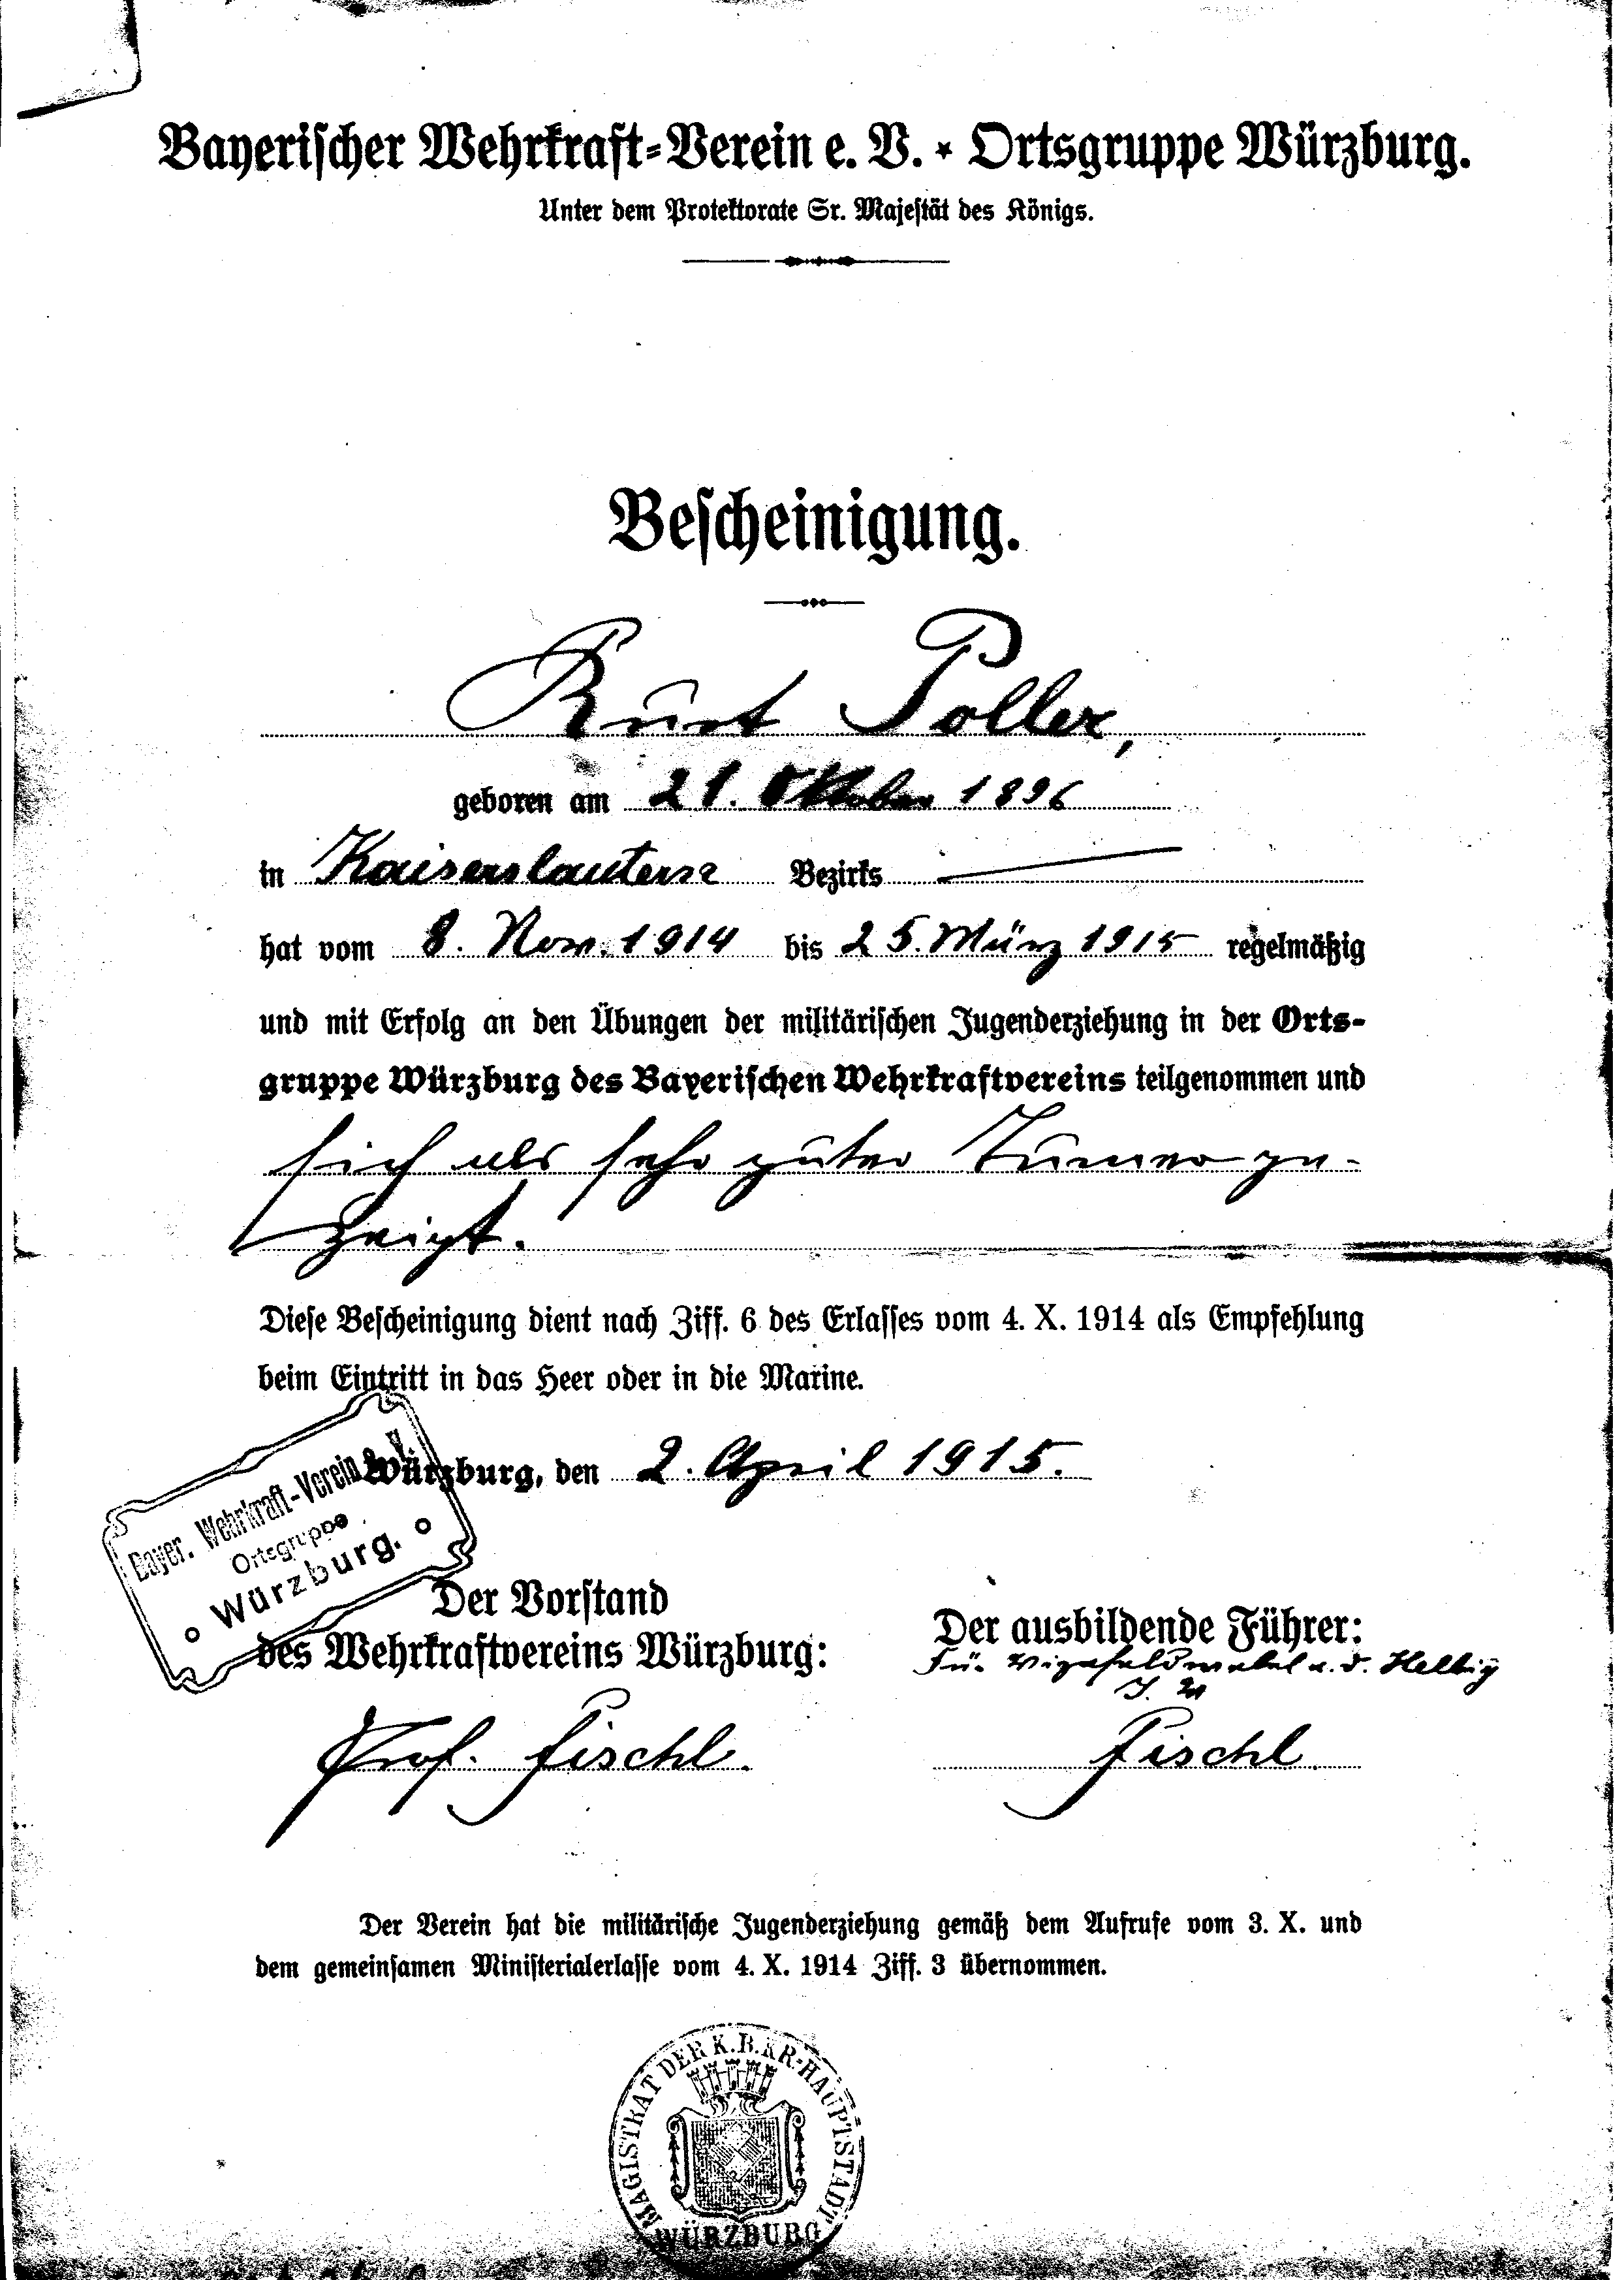 Bayerischer Wehrkraft-Verein e. V. * Ortsgruppe Würzburg.
Unter dem Protektorate Sr. Majestät des Königs.
Bescheinigung.
Kurt Poller,
geboren am 21. Oktober 1896
in Kaiserslautern Bezirks
hat vom 8. Nov. 1914 bis 25. März 1915 regelmäßig
und mit Erfolg an den Übungen der militärischen Jugenderziehung in der Orts-
gruppe Würzburg des Bayerischen Wehrkraftvereins teilgenommen und
sich als sehr guter Turner ge-
zeigt.
Diese Bescheinigung dient nach Ziff. 6 des Erlasses vom 4. X. 1914 als Empfehlung
beim Eintritt in das Heer oder in die Marine.
Würzburg, den 2. April 1915.
Bayer. Wehrkraft-Verein e. V.
Ortsgruppe
Würzburg.
Der Vorstand
des Wehrkraftvereins Würzburg:
Prof. Fischl.
Der ausbildende Führer:
Für Vizefeldwebel a. D. Helbig
Fischl.
Der Verein hat die militärische Jugenderziehung gemäß dem Aufrufe vom 3. X. und
dem gemeinsamen Ministerialerlasse vom 4. X. 1914 Ziff. 3 übernommen.
MAGISTRAT DER K. B. KR-HAUPTSTADT
WÜRZBURG